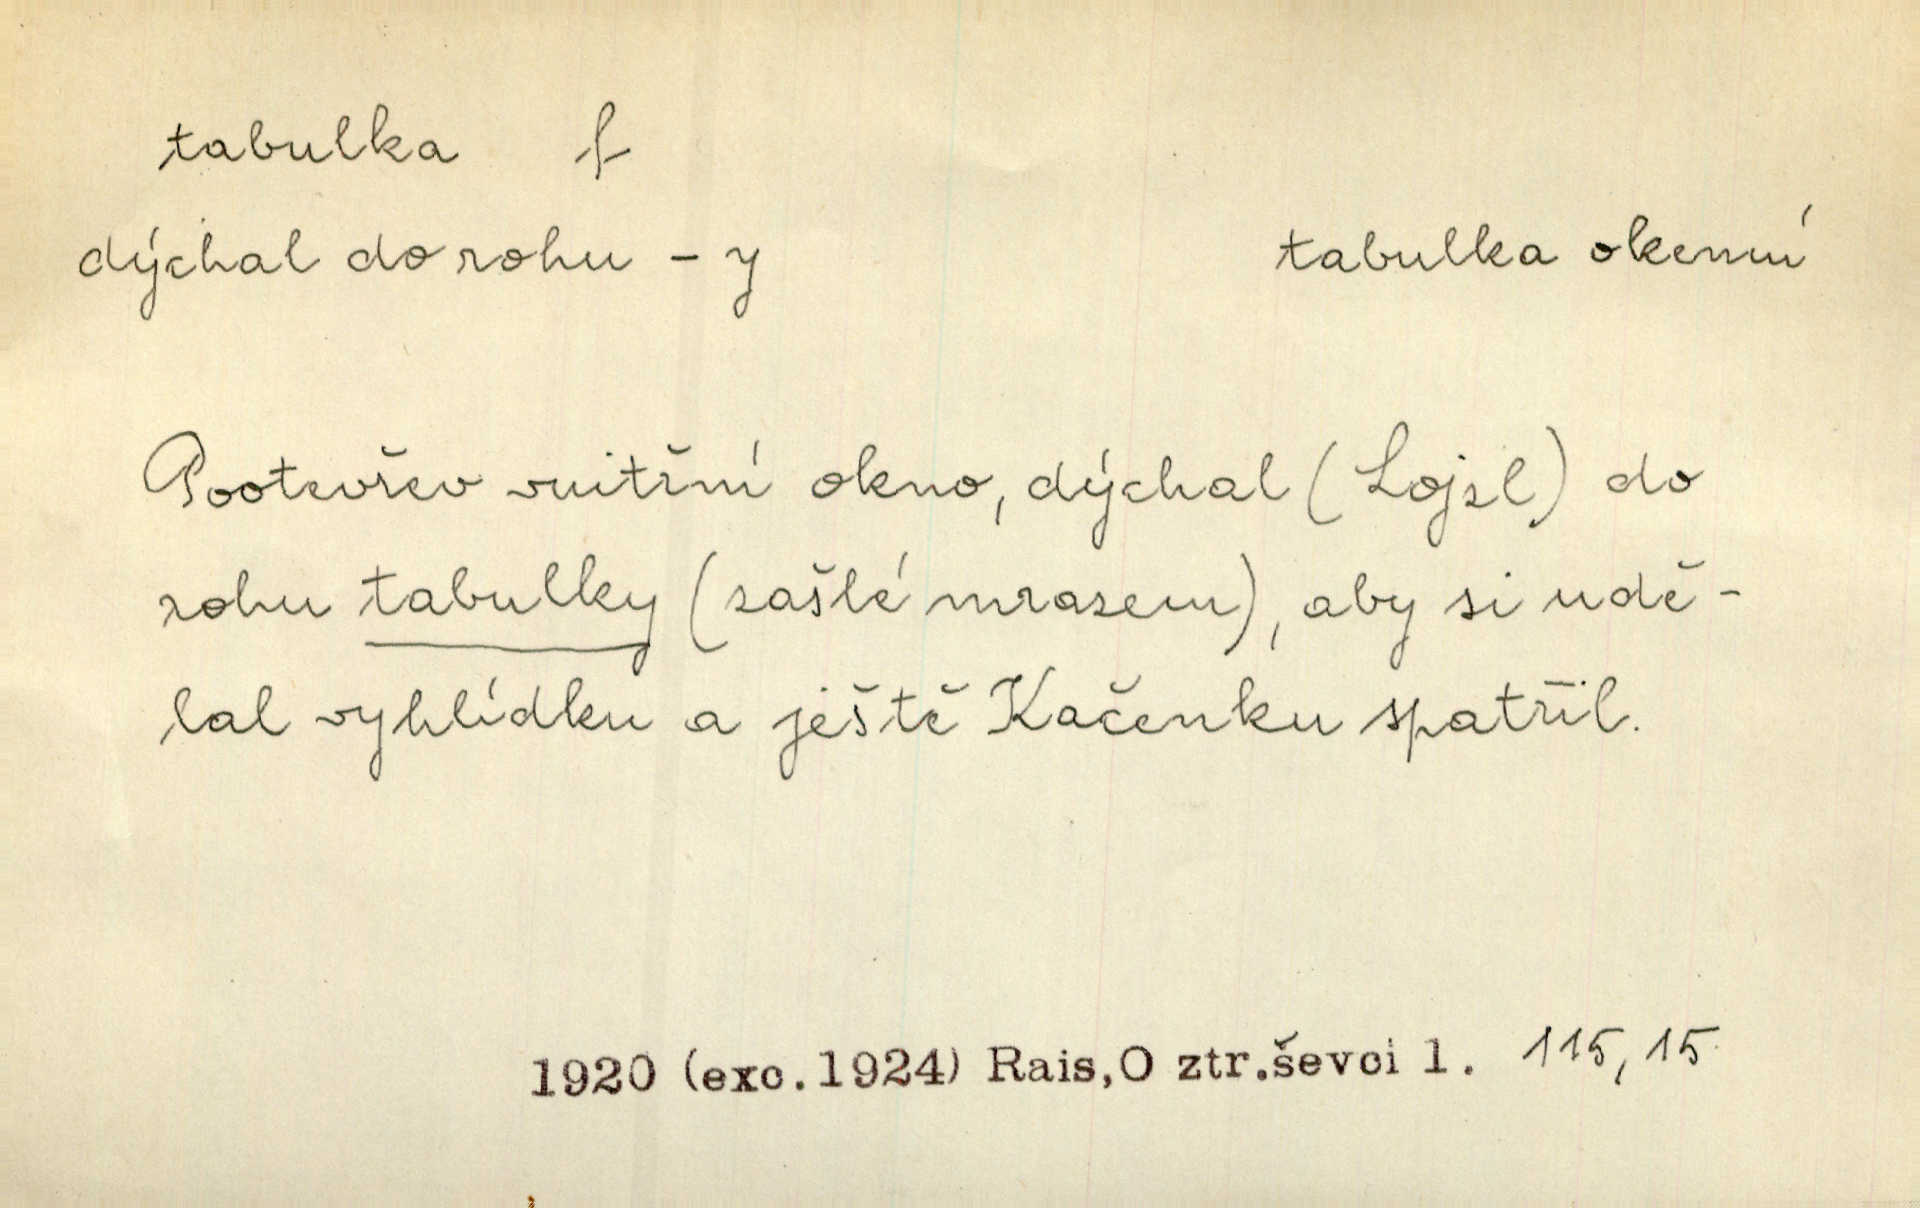 tabulka f
dýchal do rohu - y tabulka okenní
Pootevřev vnitřní okno, dýchal (Lojzl) do
rohu tabulky (zašlé mrazem), aby si udě-
lal vyhlídku a ještě Kačenku spatřil.
1920 (exc.1924) Rais,O ztr.ševci 1. 115,15